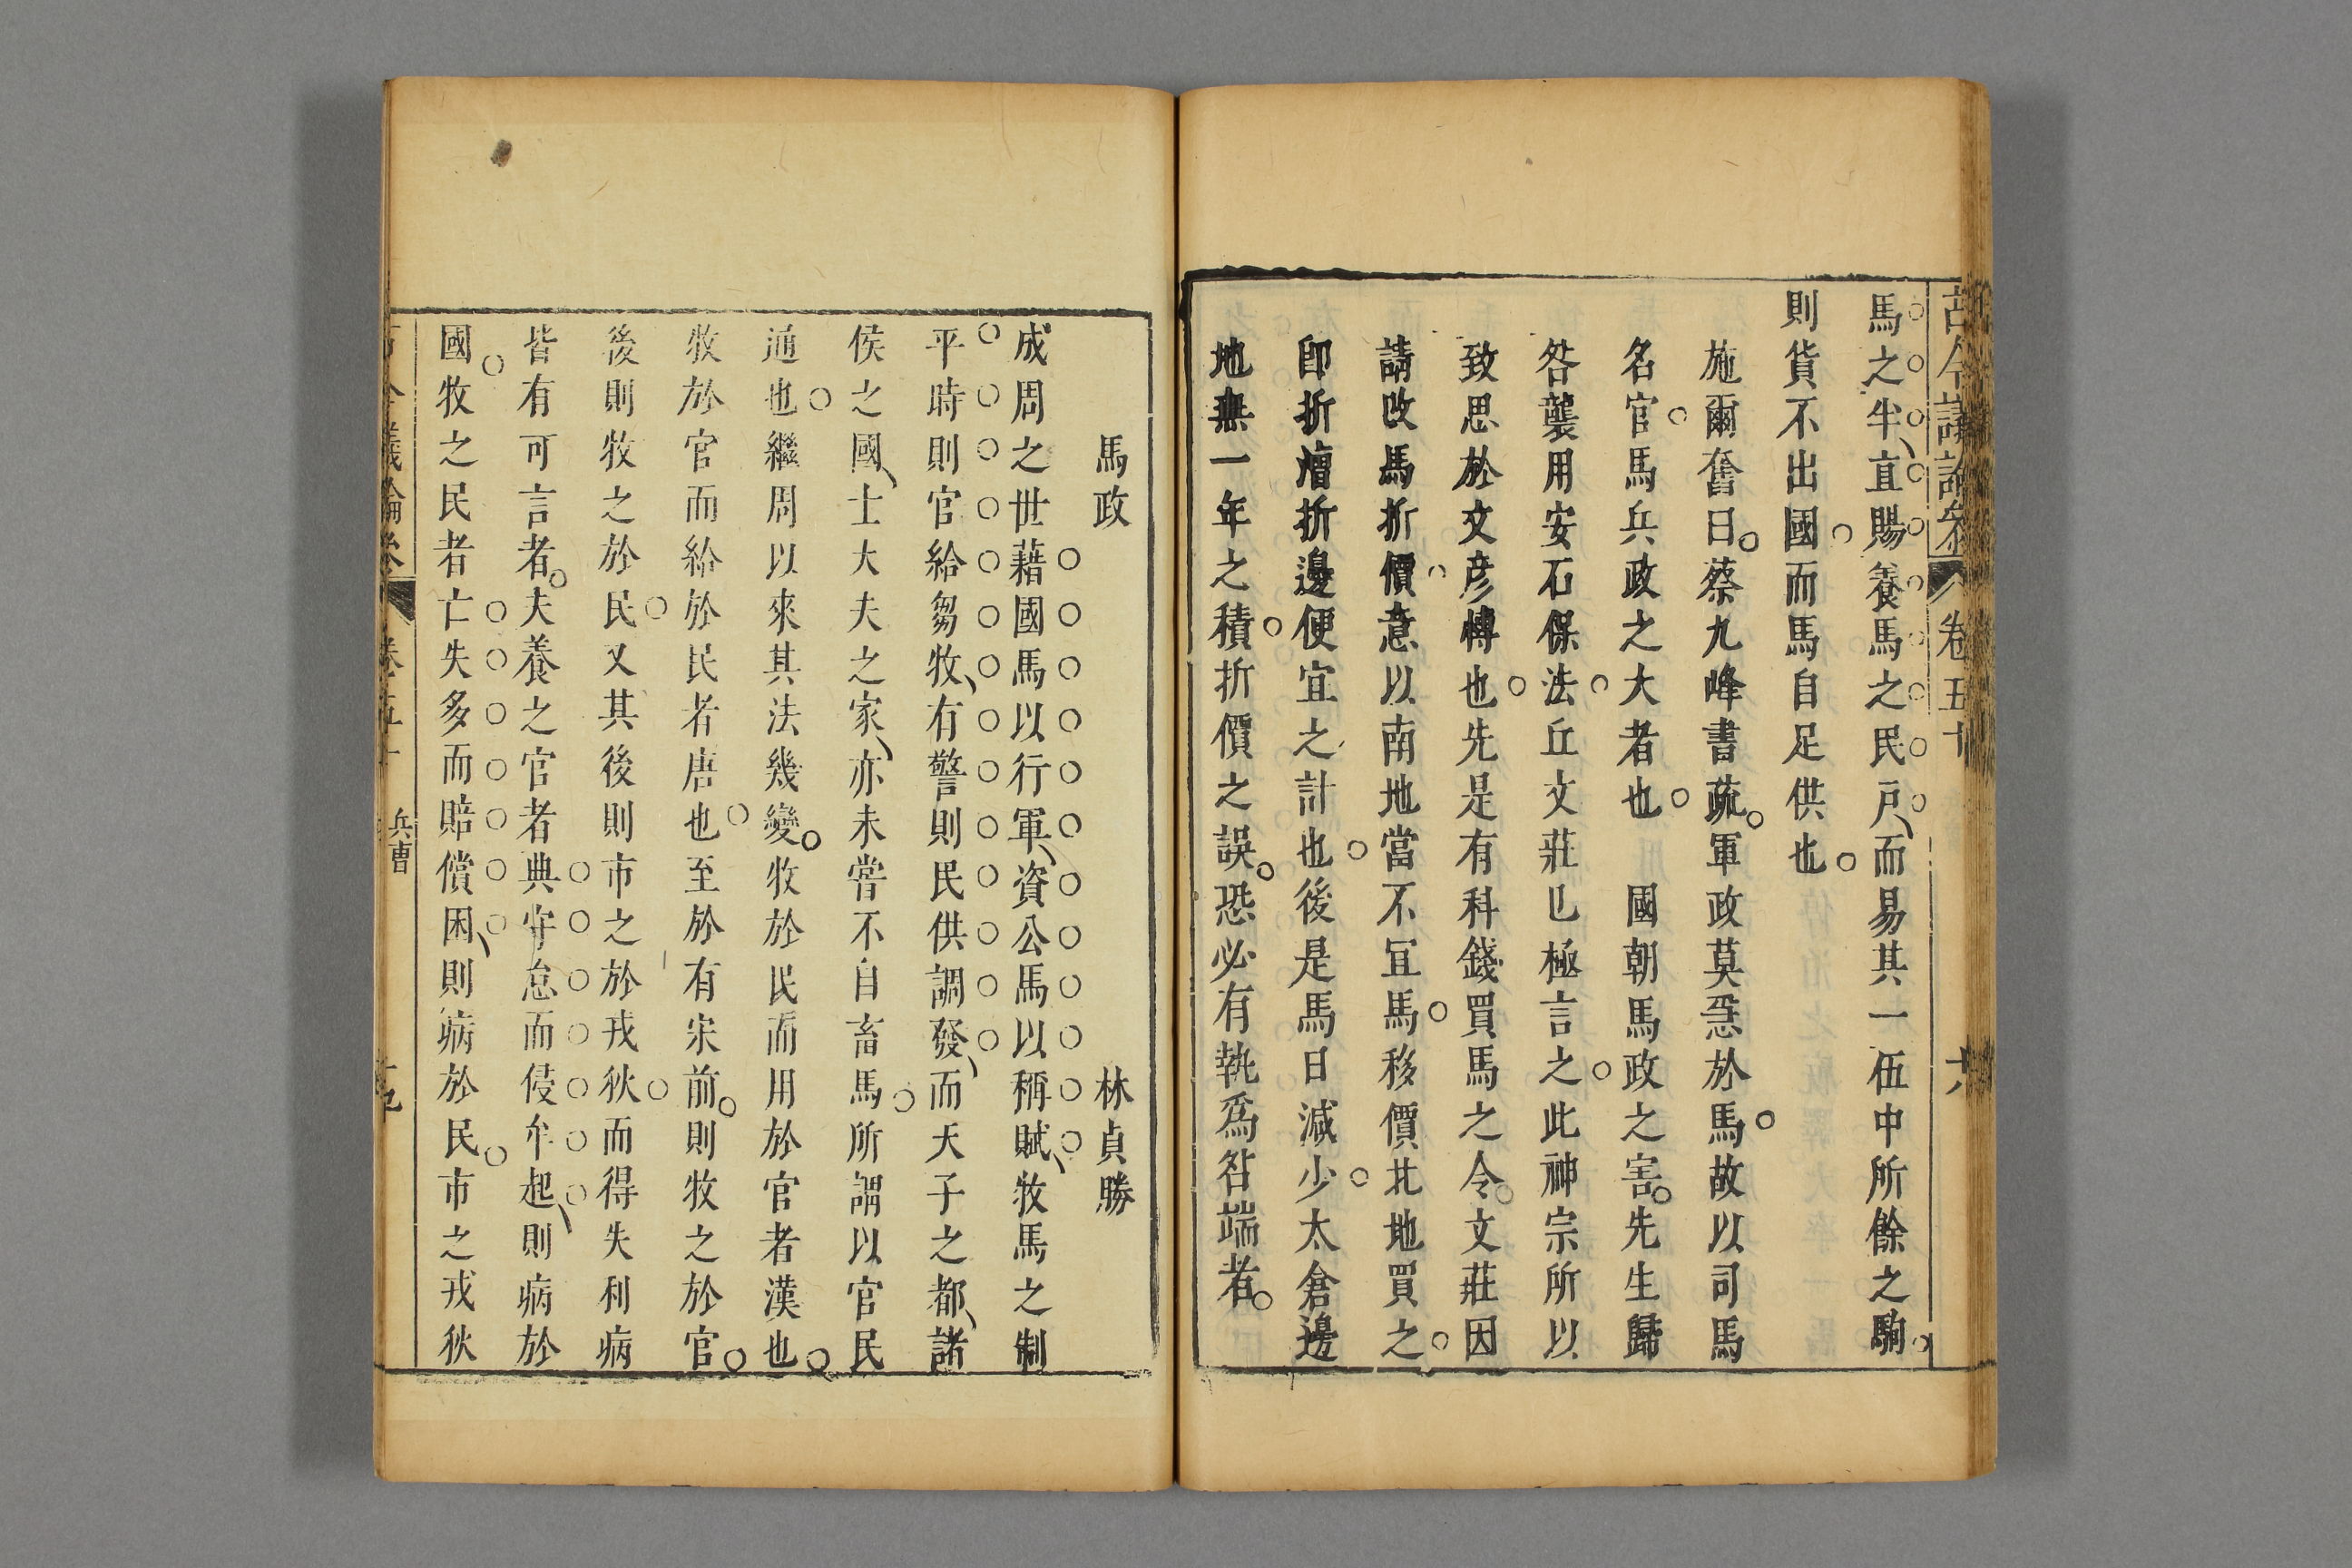 古今議論參 卷五十 十八
馬之半直賜養馬之民戸而易其一伍中所餘之駒
則貨不出國而馬自足供也
施爾奮曰蔡九峰書疏軍政莫急於馬故以司馬
名官馬兵政之大者也 國朝馬政之害先生歸
咎襲用安石保法丘文莊已極言之此神宗所以
致思於文彦愽也先是有科錢買馬之令文莊因
請改馬折價意以南地當不宜馬移價北地買之
即折漕折邊便宜之計也後是馬日減少太倉邊
地無一年之積折價之誤恐必有執爲咎端者
馬政 林貞勝
成周之世藉國馬以行軍資公馬以稱賦牧馬之制
平時則官給芻牧有警則民供調發而天子之都諸
侯之國士大夫之家亦未嘗不自畜馬所謂以官民
通也繼周以來其法幾變牧於民而用於官者漢也
牧於官而給於民者唐也至於有宋前則牧之於官
後則牧之於民又其後則市之於戎狄而得失利病
皆有可言者夫養之官者典守怠而侵牟起則病於
國牧之民者亡失多而賠償困則病於民市之戎狄
卷五十 兵曹